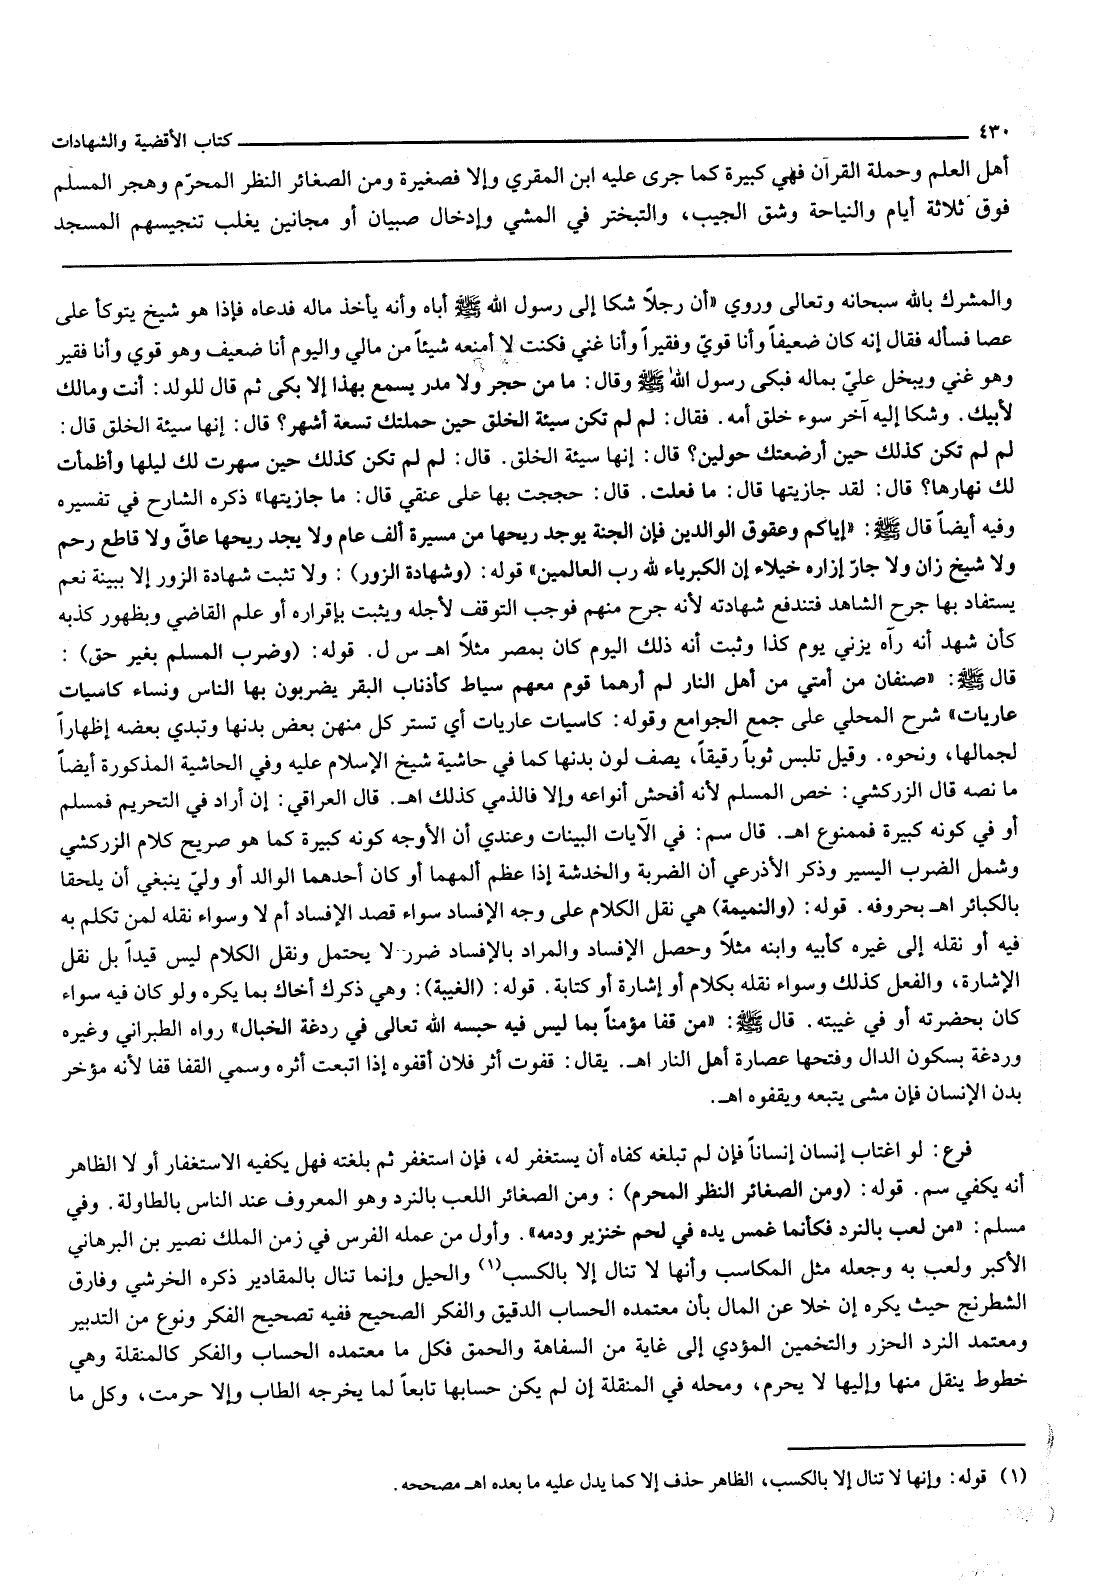 ٤٣٠ كتاب الأقضية والشهادات
أهل العلم وحملة القرآن فهي كبيرة كما جرى عليه ابن المقري وإلا فصغيرة ومن الصغائر النظر المحرّم وهجر المسلم
فوق ثلاثة أيام والنياحة وشق الجيب، والتبختر في المشي وإدخال صبيان أو مجانين يغلب تنجيسهم المسجد
والمشرك بالله سبحانه وتعالى وروي «أن رجلاً شكا إلى رسول الله ﷺ أباه وأنه يأخذ ماله فدعاه فإذا هو شيخ يتوكأ على
عصا فسأله فقال إنه كان ضعيفاً وأنا قويّ وفقيراً وأنا غني فكنت لا أمنعه شيئاً من مالي واليوم أنا ضعيف وهو قوي وأنا فقير
وهو غني ويبخل عليّ بماله فبكى رسول الله ﷺ وقال: ما من حجر ولا مدر يسمع بهذا إلا بكى ثم قال للولد: أنت ومالك
لأبيك. وشكا إليه آخر سوء خلق أمه. فقال: لم لم تكن سيئة الخلق حين حملتك تسعة أشهر؟ قال: إنها سيئة الخلق قال:
لم لم تكن كذلك حين أرضعتك حولين؟ قال: إنها سيئة الخلق. قال: لم لم تكن كذلك حين سهرت لك ليلها وأظمأت
لك نهارها؟ قال: لقد جازيتها قال: ما فعلت. قال: حججت بها على عنقي قال: ما جازيتها» ذكره الشارح في تفسيره
وفيه أيضاً قال ﷺ: «إياكم وعقوق الوالدين فإن الجنة يوجد ريحها من مسيرة ألف عام ولا يجد ريحها عاقّ ولا قاطع رحم
ولا شيخ زان ولا جارّ إزاره خيلاء إن الكبرياء لله رب العالمين» قوله: (وشهادة الزور) : ولا تثبت شهادة الزور إلا ببينة نعم
يستفاد بها جرح الشاهد فتندفع شهادته لأنه جرح منهم فوجب التوقف لأجله ويثبت بإقراره أو علم القاضي وبظهور كذبه
كأن شهد أنه رآه يزني يوم كذا وثبت أنه ذلك اليوم كان بمصر مثلاً اهـ س ل. قوله: (وضرب المسلم بغير حق) :
قال ﷺ: «صنفان من أمتي من أهل النار لم أرهما قوم معهم سياط كأذناب البقر يضربون بها الناس ونساء كاسيات
عاريات» شرح المحلي على جمع الجوامع وقوله: كاسيات عاريات أي تستر كل منهن بعض بدنها وتبدي بعضه إظهاراً
لجمالها، ونحوه. وقيل تلبس ثوباً رقيقاً، يصف لون بدنها كما في حاشية شيخ الإسلام عليه وفي الحاشية المذكورة أيضاً
ما نصه قال الزركشي: خص المسلم لأنه أفحش أنواعه وإلا فالذمي كذلك اهـ. قال العراقي: إن أراد في التحريم فمسلم
أو في كونه كبيرة فممنوع اهـ. قال سم: في الآيات البينات وعندي أن الأوجه كونه كبيرة كما هو صريح كلام الزركشي
وشمل الضرب اليسير وذكر الأذرعي أن الضربة والخدشة إذا عظم ألمهما أو كان أحدهما الوالد أو وليّ ينبغي أن يلحقا
بالكبائر اهـ بحروفه. قوله: (والنميمة) هي نقل الكلام على وجه الإفساد سواء قصد الإفساد أم لا وسواء نقله لمن تكلم به
فيه أو نقله إلى غيره كأبيه وابنه مثلاً وحصل الإفساد والمراد بالإفساد ضرر لا يحتمل ونقل الكلام ليس قيداً بل نقل
الإشارة، والفعل كذلك وسواء نقله بكلام أو إشارة أو كتابة. قوله: (الغيبة): وهي ذكرك أخاك بما يكره ولو كان فيه سواء
كان بحضرته أو في غيبته. قال ﷺ: «من قفا مؤمناً بما ليس فيه حبسه الله تعالى في ردغة الخبال» رواه الطبراني وغيره
وردغة بسكون الدال وفتحها عصارة أهل النار اهـ. يقال: قفوت أثر فلان أقفوه إذا اتبعت أثره وسمي القفا قفا لأنه مؤخر
بدن الإنسان فإن مشى يتبعه ويقفوه اهـ.
فرع: لو اغتاب إنسان إنساناً فإن لم تبلغه كفاه أن يستغفر له، فإن استغفر ثم بلغته فهل يكفيه الاستغفار أو لا الظاهر
أنه يكفي سم. قوله: (ومن الصغائر النظر المحرم) : ومن الصغائر اللعب بالنرد وهو المعروف عند الناس بالطاولة. وفي
مسلم: «من لعب بالنرد فكأنما غمس يده في لحم خنزير ودمه». وأول من عمله الفرس في زمن الملك نصير بن البرهاني
الأكبر ولعب به وجعله مثل المكاسب وأنها لا تنال إلا بالكسب(١) والحيل وإنما تنال بالمقادير ذكره الخرشي وفارق
الشطرنج حيث يكره إن خلا عن المال بأن معتمده الحساب الدقيق والفكر الصحيح ففيه تصحيح الفكر ونوع من التدبير
ومعتمد النرد الحزر والتخمين المؤدي إلى غاية من السفاهة والحمق فكل ما معتمده الحساب والفكر كالمنقلة وهي
خطوط ينقل منها وإليها لا يحرم، ومحله في المنقلة إن لم يكن حسابها تابعاً لما يخرجه الطاب وإلا حرمت، وكل ما
(١) قوله: وإنها لا تنال إلا بالكسب، الظاهر حذف إلا كما يدل عليه ما بعده اهـ مصححه.